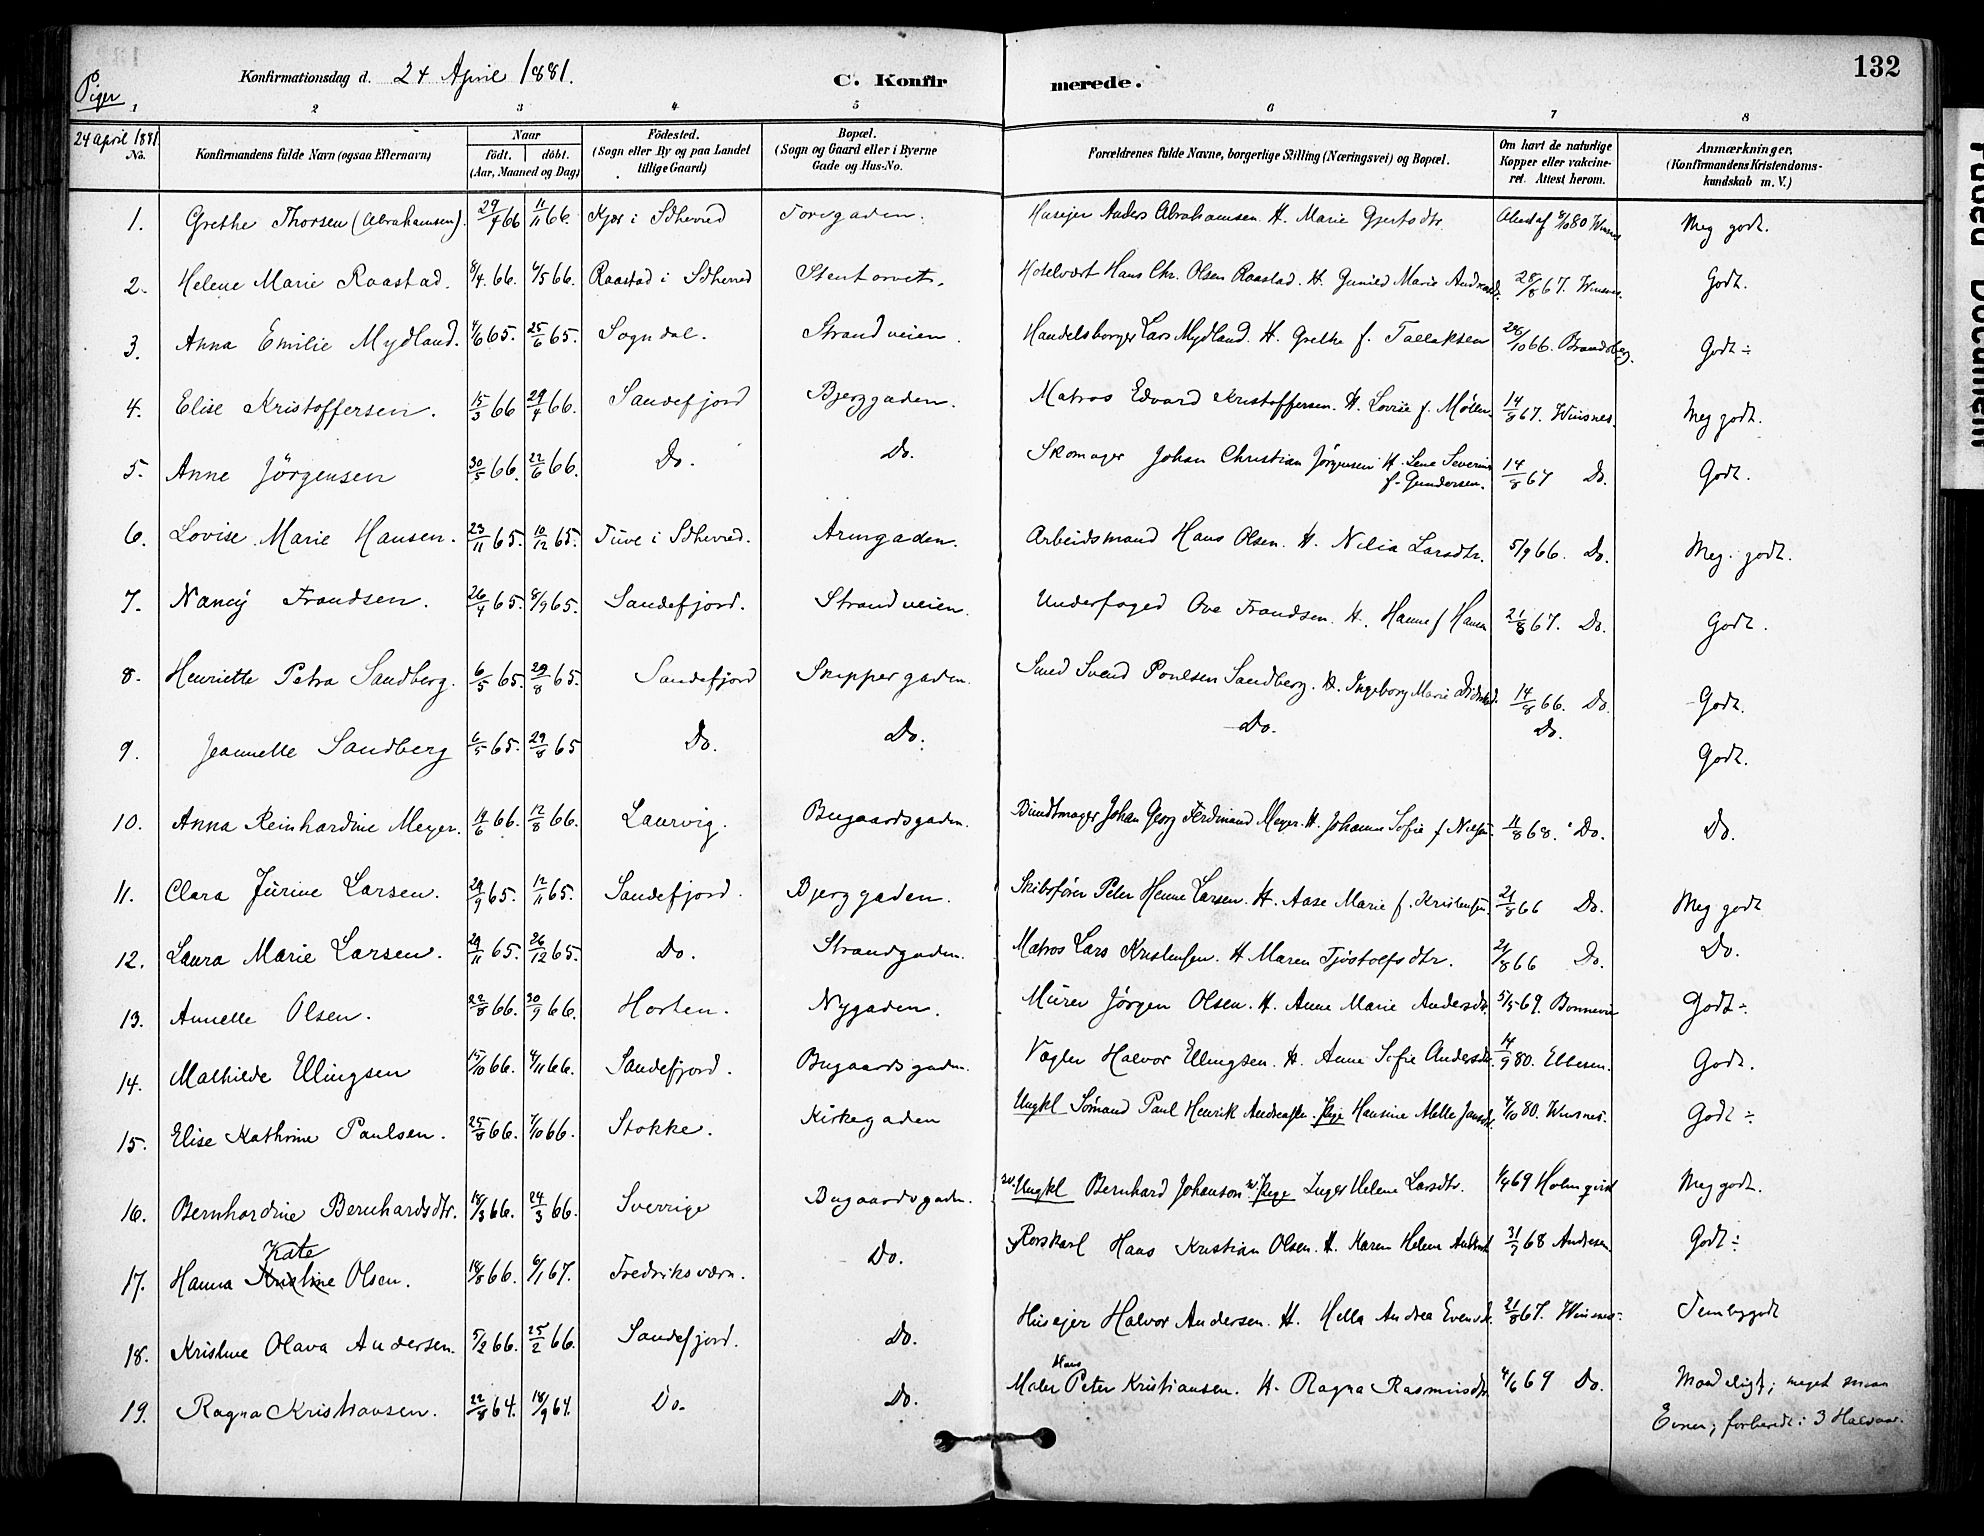 Piger
Konfirmationsdag d. 24 April 1881.
C. Konfirmerede.
132
1 2 3 4 5 6 7 8
24 April 1881
No.
Konfirmandens fulde Navn (ogsaa Efternavn)
Naar
födt. döbt.
(Aar, Maaned og Dag)
Födested.
(Sogn eller By og paa Landet
tillige Gaard)
Bopæl.
(Sogn og Gaard eller i Byerne
Gade og Hus-No.
Forældrenes fulde Navne, borgerlige Stilling (Næringsvei) og Bopæl.
Om havt de naturlige
Kopper eller vakcine-
ret. Attest herom.
Anmærkninger.
(Konfirmandens Kristendoms-
kundskab m. V.)
1. Grethe Thorsen (Abrahamsen). 29/7 66 11/11 66. Kjær i Sdhered Torvgaden. Huseier Anders Abrahamsen. H. Marie Gjertsdtr. 8/10 80 Winsnes Meg godt.
2. Helene Marie Raastad. 8/4. 66. 6/5 66. Raastad i Sdhered Stentorvet. Hotelvært Hans Chr. Olsen Raastad. H. Gunild Marie 28/8 67. Winsnes. Godt.
3. Anna Emilie Mydland. 4/6 65. 25/6 65. Sogndal. Strandveien. Handelsborger Lars Mydland. H. Grethe f. Tallaksen 26/10 66. Brandsberg. Godt ÷
4. Elise Kristoffersen. 15/3 66 29/4 66. Sandefjord Bjerggaden. Matros Edvard Kristoffersen. H. Lovise f. Møller. 14/8 67. Winsnes. Meg godt.
5. Anne Jörgensen 30/5 66. 22/6 66. Do. Do. Skomager Johan Christian Jørgensen H. Lene Severine
f. Gundersen. 14/8 67 Do. Godt.
6. Lovise Marie Hansen. 23/11 65. 10/12 65. Tuve i Sdhered. Arungaden. Arbeidsmand Hans Olsen. H. Nilia Larsdtr. 5/9 66. Do. Meg. godt.
7. Nancy Frandsen. 26/4 65. 8/9 65. Sandefjord. Strandveien. Underfoged Ove Frandsen. H. Hanne f Hansen 21/8 67. Do. Godt.
8. Henriette Petra Sandberg. 6/5 65. 29/8 65. Sandefjord Skippergaden. Smed Svend Poulsen Sandberg. H. Ingeborg Marie 14/8 66. Do. Godt.
9. Jeannette Sandberg 6/5 65. 29/8 65 Do. Do. Do. Do. Godt.
10. Anna Reinhardine Meyer. 11/6 66. 12/8 66. Laurvig. Bugaardsgaden. Bundtmager Johan Georg Ferdinand Meyer. H. Johanne Sofie f Nielsen. 11/8 68. Do. Do.
11. Clara Jurine Larsen. 29/9 65. 12/11 65. Sandefjord. Bjerggaden. Skibsfører Peter Henne Larsen. H. Aase Marie f. Kristensen. 21/8 66 Do. Meg godt
12. Laura Marie Larsen. 29/11 65. 26/12 65. Do. Strandgaden. Matros Lars Kristensen. H Maren Tjøstolfsdtr. 21/8 66 Do. Do.
13. Annette Olsen. 22/8 66. 30/9 66. Horten. Nygaden. Murer Jørgen Olsen. H. Anne Marie Andersdtr. 5/5 69. Bonnevie Godt ÷.
14. Mathilde Ellingsen 15/10 66. 4/11 66. Sandefjord. Bugaardsgaden. Vægter Halvor Ellingsen. H. Anne Sofie Andersdtr. 14/9 80. Ebbesen. Godt.
15. Elise Kathrine Paulsen. 25/8 66. 7/10 66. Stokke. Kirkegaden Ungkl Sömand Paul Henrik Andreassen. Pige Hansine 4/10 80. Winsnes. Godt ÷
16. Bernhardine Bernhardsdtr. 18/3 66. 24/3 66. Sverrige Bugaardsgaden. Ungkl Bernhard Johanson Pige Inger Helene Larsdtr. 1/4 69 Holmqvist Meg godt.
Kate
17. Hanna Kristine Olsen. 18/8 66. 6/1 67. Fredriksværn. Do. Rorskarl Hans Kristian Olsen. H. Karen Helene 31/7 68 Andresen. Godt ÷
18. Kristine Olava Andersen. 5/2 66. 25/2 66. Sandefjord. Do. Huseier Halvor Andersen. H. Hella Andrea Evensdtr. 21/8 67. Winsnes. Temmgodt
Hans
19. Ragna Kristiansen. 22/8 64. 18/9 64. Do. Do. Maler Peter Kristiansen. H. Ragna Rasmusdtr. 4/6 69 Do. Maadeligt; meget smaa
Evner; forberedt i 3 Halvaar.